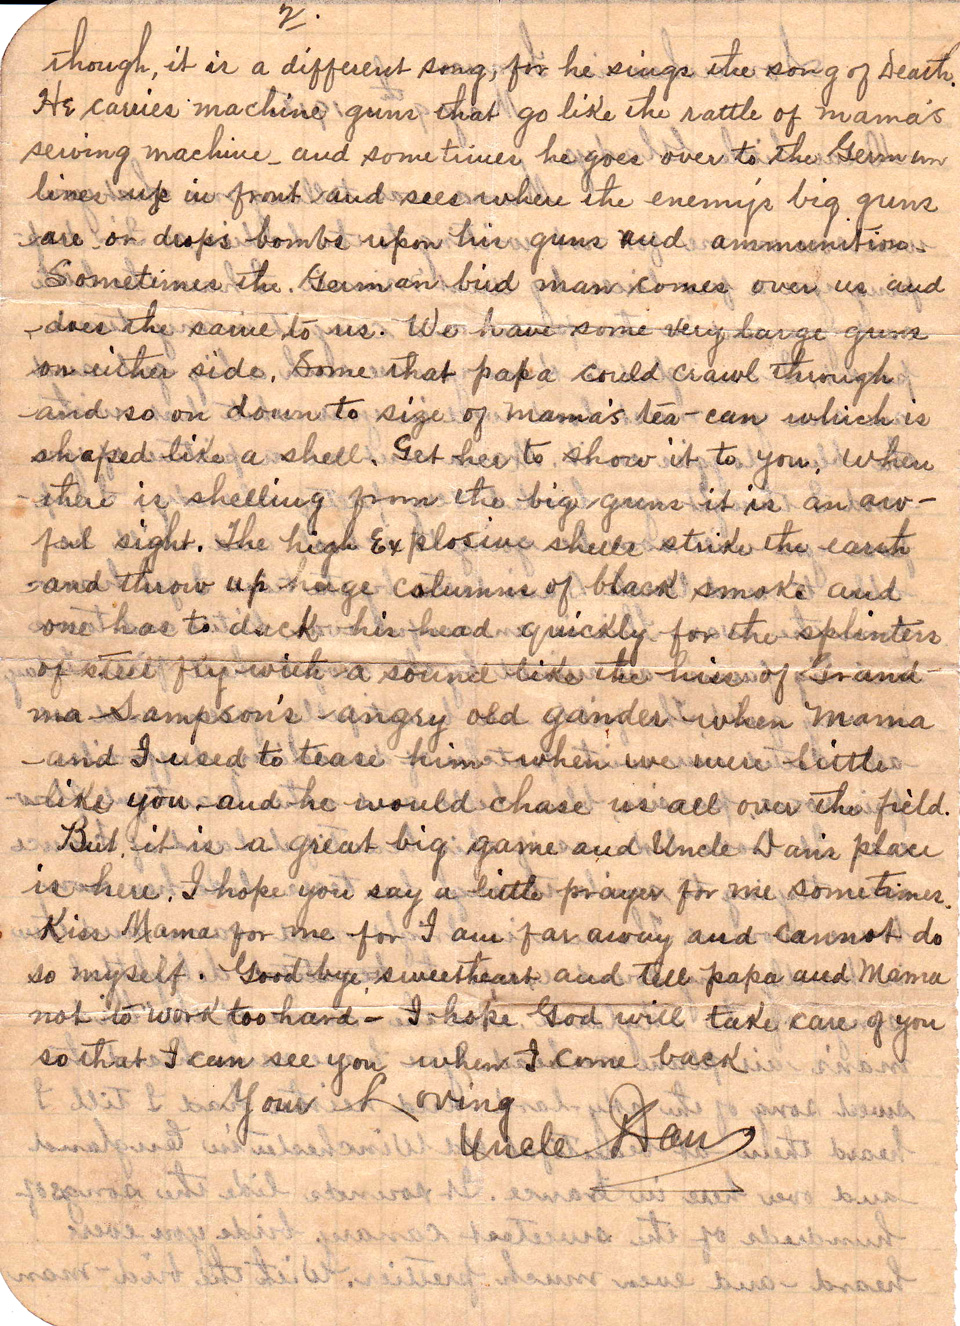 2.
though, it is a different song, for he sings the song of Death.
He carries machine guns that go like the rattle of mama's
sewing machine - and sometimes he goes over to the German
lines up in front and sees where the enemy's big guns
are or drops bombs upon his guns and ammunition.
Sometimes the German bird man comes over us and
does the same to us. We have some very large guns
on either side. Some that papa could crawl through
and so on down to size of Mama's tea-can which is
shaped like a shell. Get her to show it to you. When
there is shelling from the big guns it is an aw-
ful sight. The high Explosive shells strike the earth
and throw up huge columns of black smoke and
one has to duck his head quickly for the splinters
of steel fly with a sound like the hiss of Grand-
ma Sampson's angry old gander when Mama
and I used to tease him when we were little
like you, and he would chase us all over the field.
But, it is a great big game and Uncle Dan's place
is here. I hope you say a little prayer for me sometimes.
Kiss Mama for me for I am far away and cannot do
so myself. Good bye sweetheart and tell papa and Mama
not to work too hard - I hope God will take care of you
so that I can see you when I come back
Your Loving
Uncle Dan